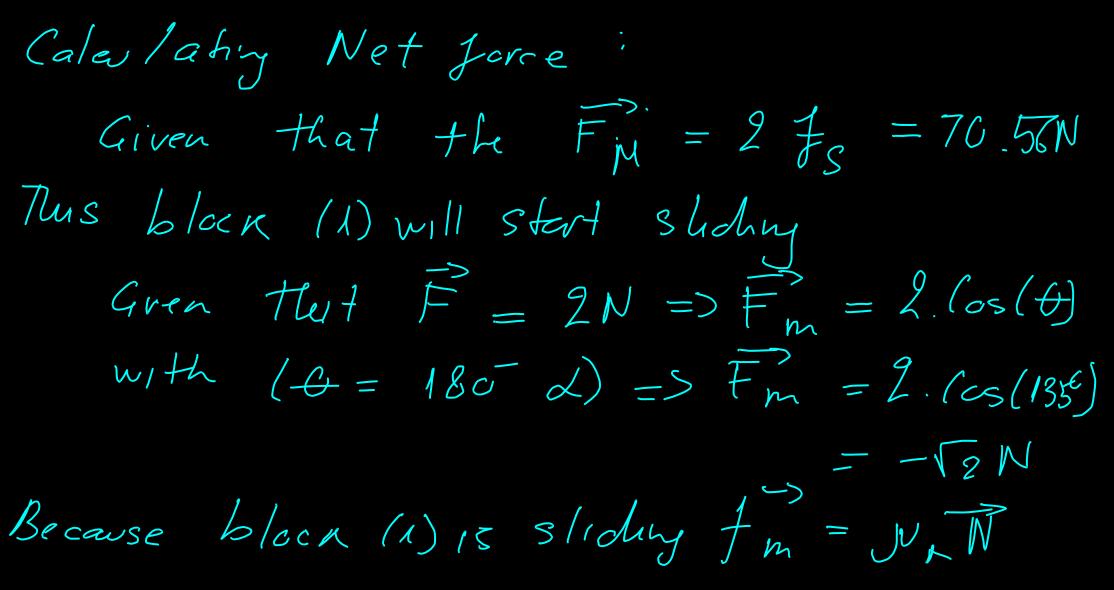 Calculating Net force :
Given that the F⃗_M = 2 f_s = 70.56N
Thus block (1) will start sliding
Given that F⃗ = 2N => F⃗_m = 2.Cos(θ)
with (θ = 180 - α) => F⃗_m = 2.Cos(135°)
= -√2 N
Because block (1) is sliding f⃗_m = μ_k N⃗